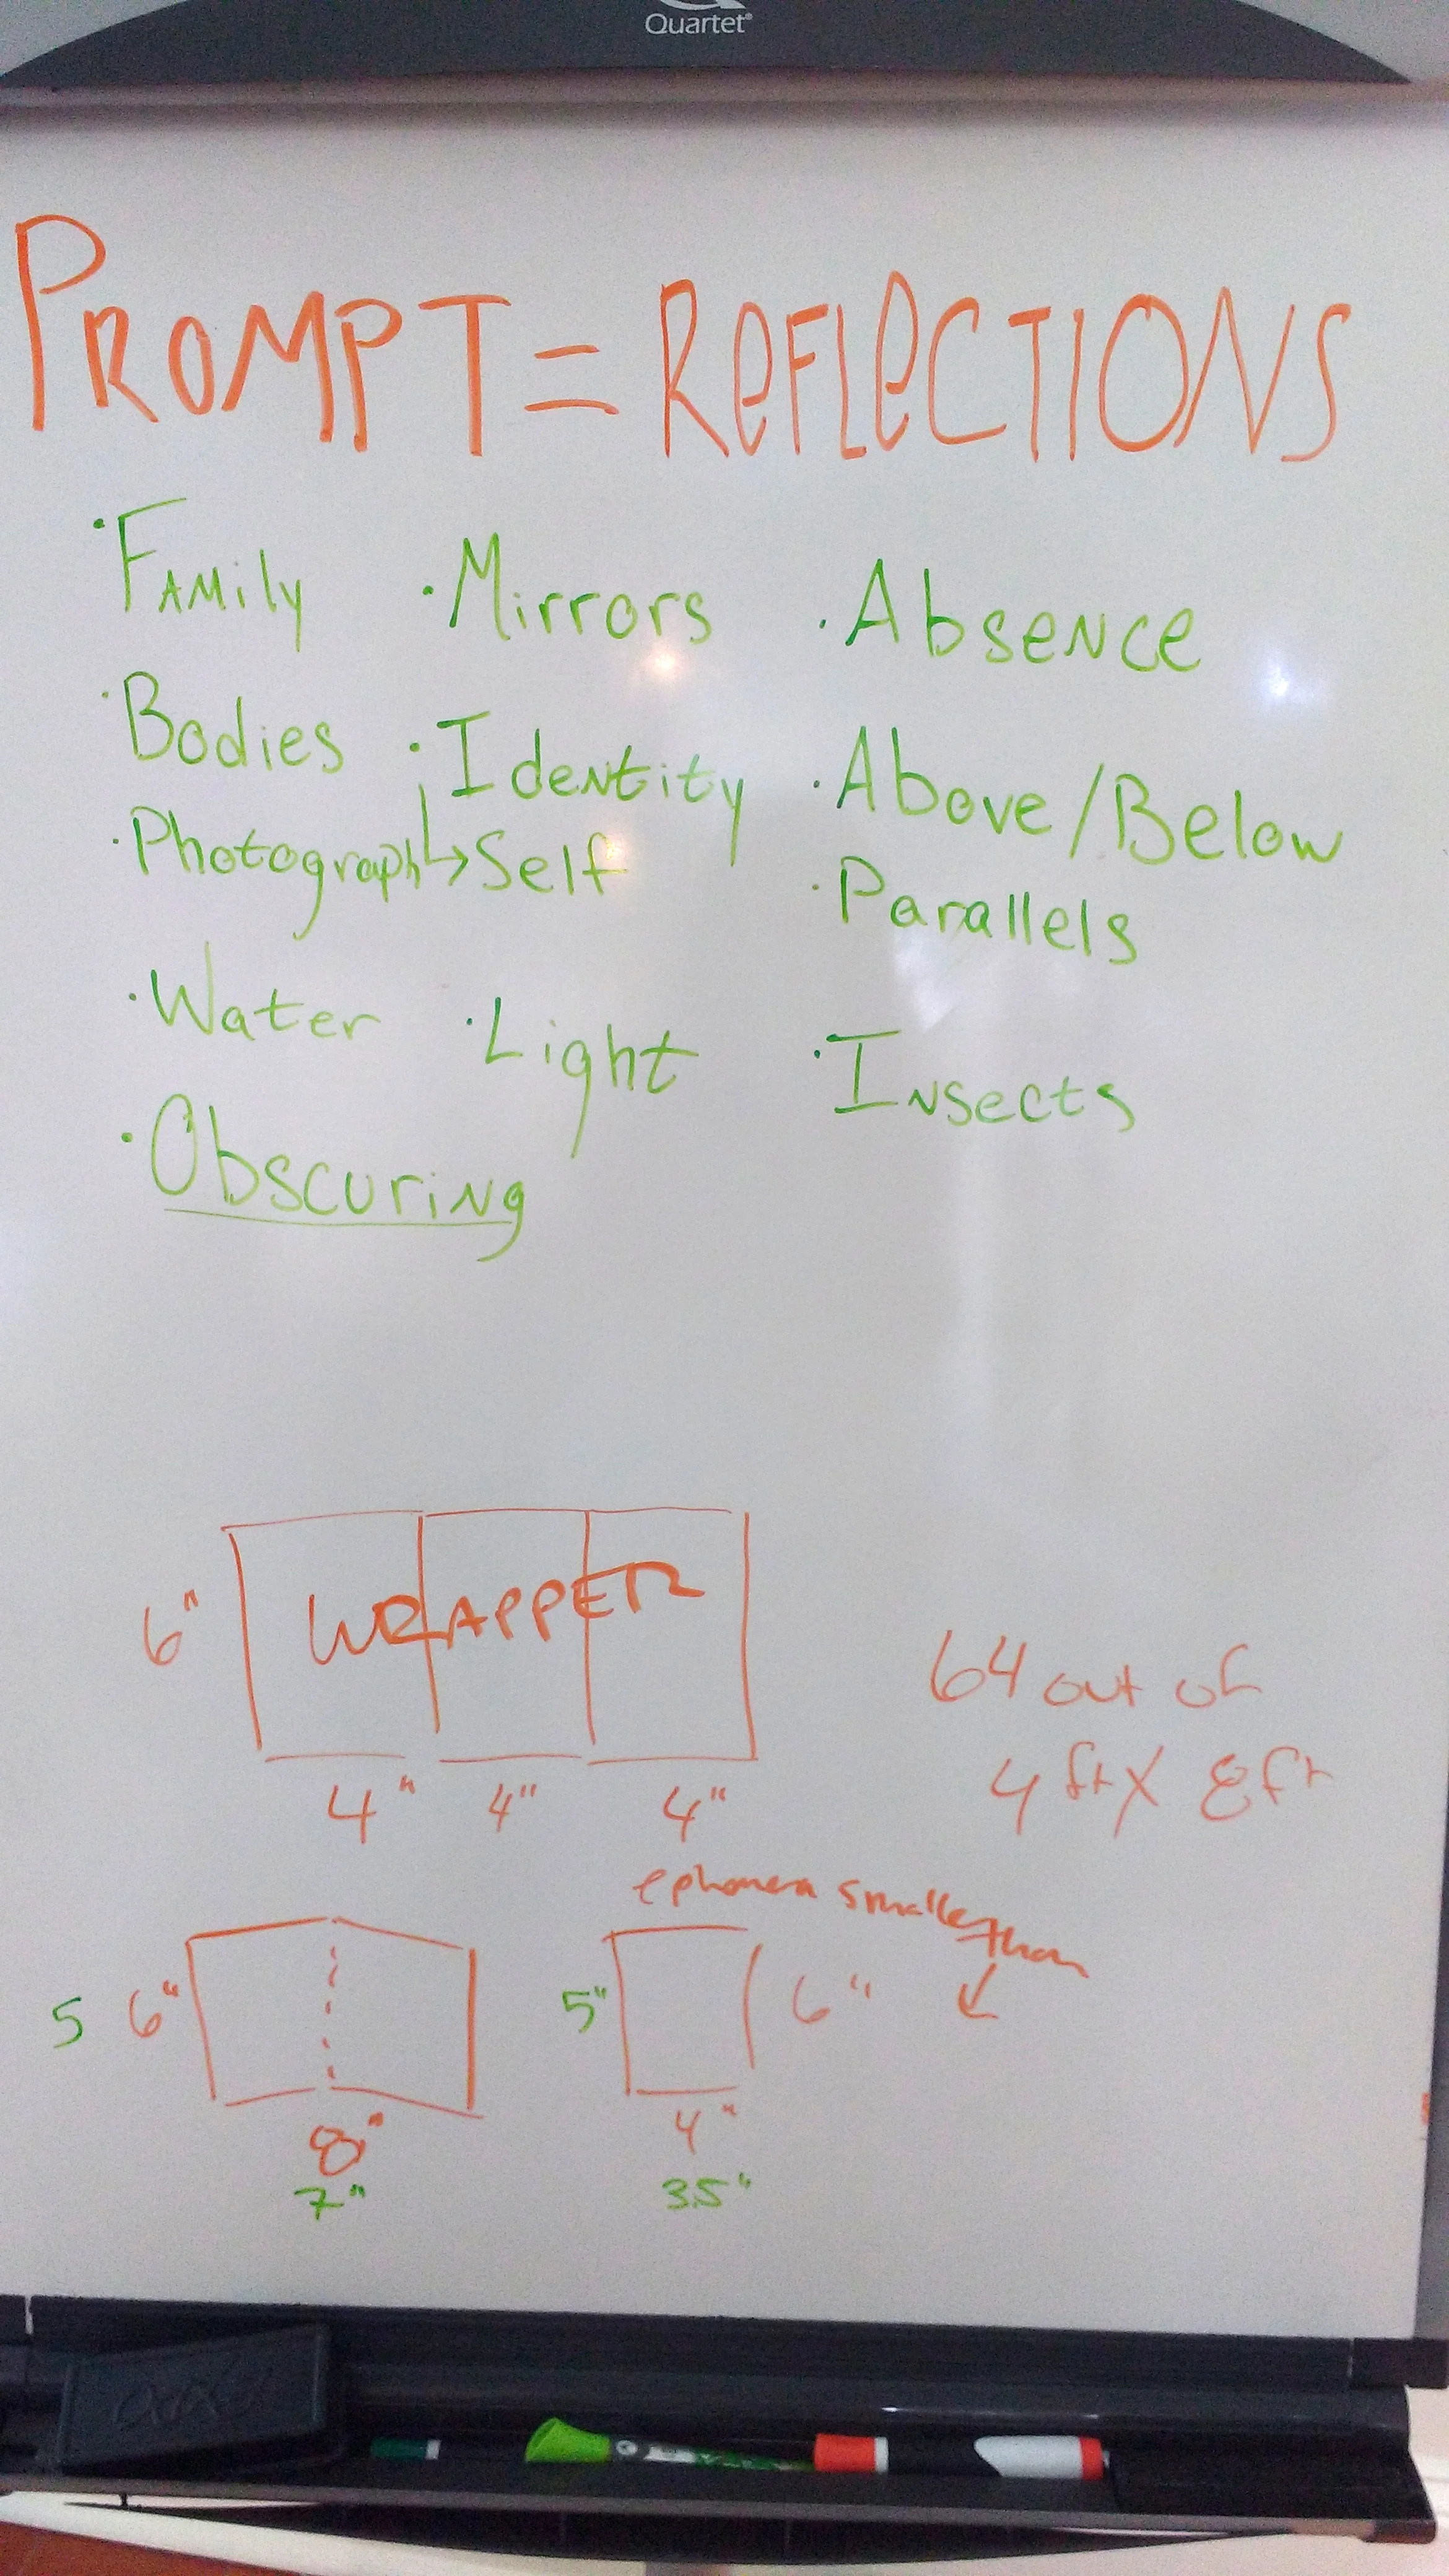 Quartet®
PROMPT = REFLECTIONS
· Family · Mirrors · Absence
· Bodies · Identity · Above/Below
· Photograph ↳ Self · Parallels
· Water · Light · Insects
· Obscuring
WRAPPER
6"
64 out of
4 ft X 8 ft
4" 4" 4"
ephemera smaller than
5 6" 5" 6"
8" 4"
7" 3.5"
EXPO